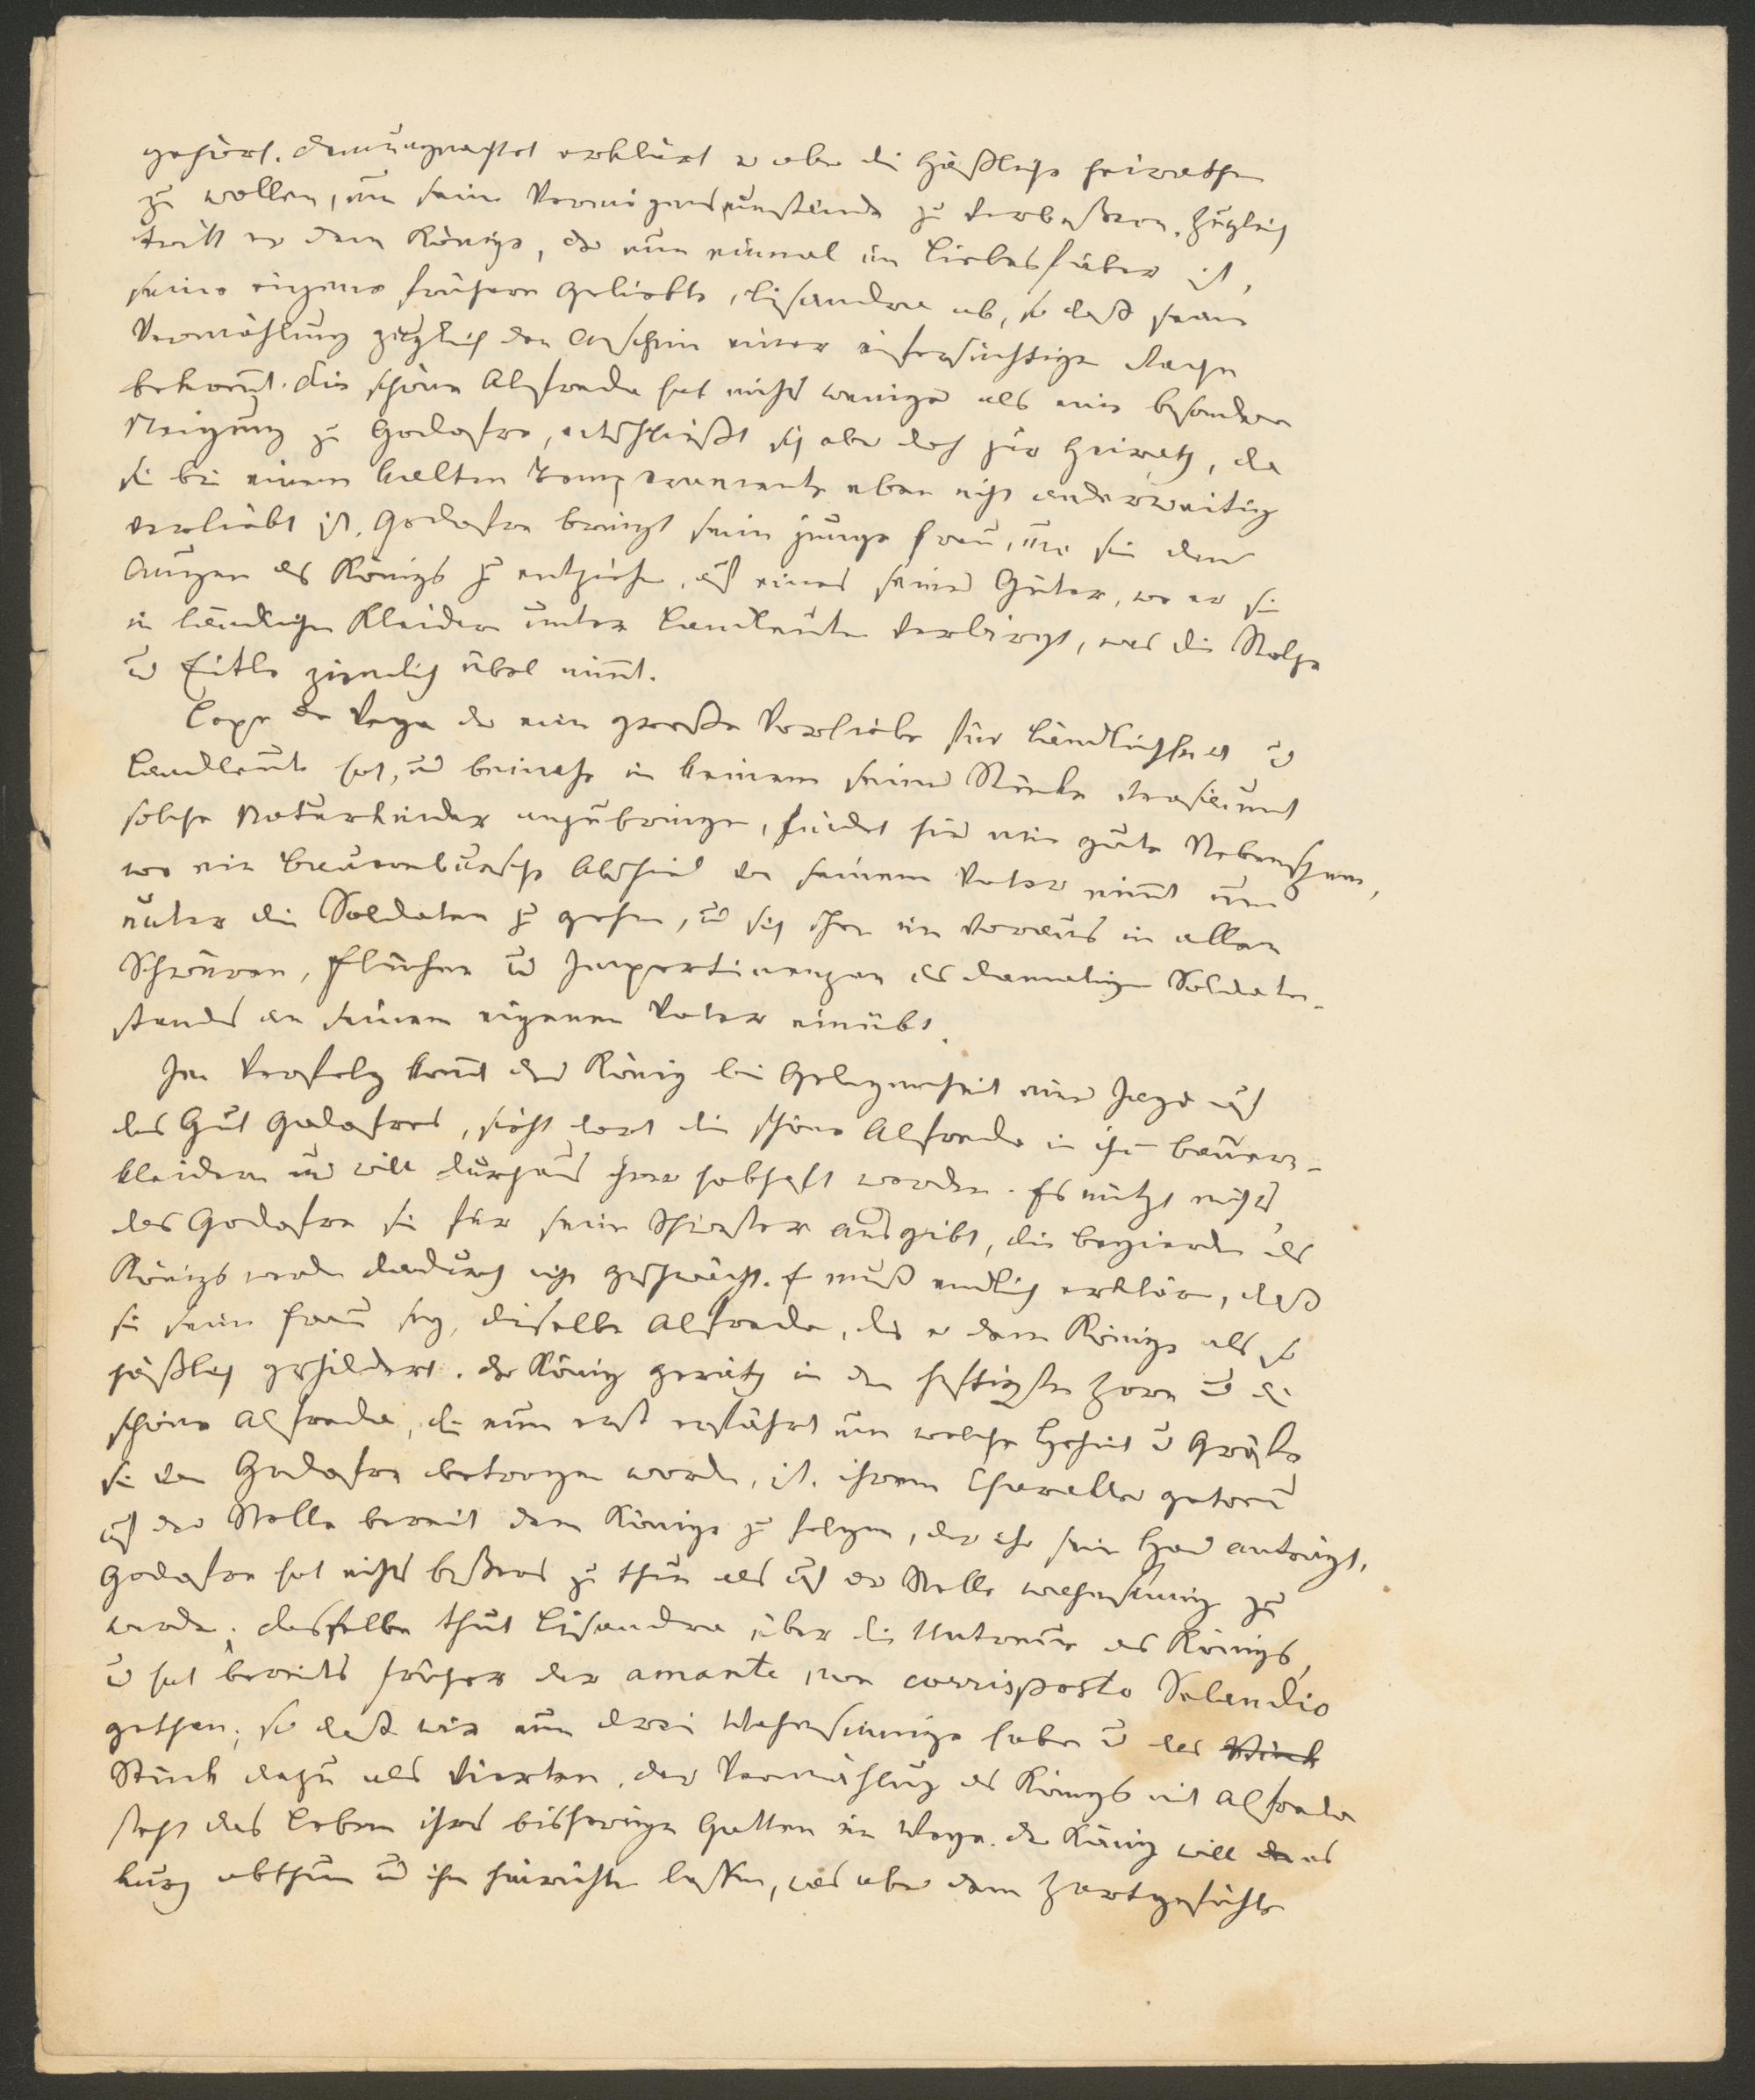 gehört. Demungeachtet erklärt er aber die Häßliche heirathen
zu wollen, um seine Vermögensumstände zu verbeßern. Zugleich
tritt er dem Könige, der nun einmal im Liebesfieber ist,
seine eigene frühere Geliebte, Lisandra ab, so daß seine
Vermählung zugleich den Anschein einer eifersüchtigen Rache
bekom̄t. Die schöne Alfreda hat nichts weniger als eine besondere
Neigung zu Godofre, entschließt sich aber doch zur Heirath, da
sie bei einem kalten Temperamente eben nicht anderweitig
verliebt ist. Godofre bringt seine junge Frau, um sie den
Augen des Königs zu entziehen, auf eines seiner Güter, wo er sie
in ländlichen Kleidern unter Landleuten verbirgt, was die Stolze
u Eitle ziemlich übel nim̄t.
Lope de Vega der eine große Vorliebe für Ländlichkeit u
Landleute hat, und beinahe in keinem seiner Stücke versäumt
solche Naturkinder anzubringen, findet hier eine gute Nebenszene,
wo ein Bauernbursche Abschied von seinem Vater nim̄t um
unter die Soldaten zu gehen, und sich schon im Voraus in allen
Schwüren, Flüchen und Impertinenzen des damaligen Soldaten-
standes an seinem eigenen Vater einübt.
Im Verfolg kom̄t der König bei Gelegenheit einer Jagd auf
das Gut Godofres, sieht dort die schöne Alfreda in ihren Bauern-
kleidern und will durchaus ihrer habhaft werden. Es nützt nichts,
daß Godofre sie für seine Schwester ausgibt, die Begierden des
Königs werden dadurch nicht geschwächt. Er muß endlich erklären, daß
sie seine Frau sey, dieselbe Alfreda, die er dem Könige als so
häßlich geschildert. Der König geräth in den heftigsten Zorn und die
schöne Alfreda, die nun erst erfährt um welche Hoheit u Größe
sie von Godofre betrogen worden, ist, ihrem Charakter getreu
auf der Stelle bereit dem Könige zu folgen, der ihr seine Hand anträgt.
Godofre hat nichts beßeres zu thun als auf der Stelle wahnsinnig zu
werden; dasselbe thut Lisandra über die Untreue des Königs,
u hat bereits früher der amante non corrisposto Selandio
gethan; so daß wir nun drei Wahnsinnige haben u das Stück
Stück dazu als Vierten. Der Vermählung des Königs mit Alfreda
steht das Leben ihres bisherigen Gatten im Wege. Der König will es
kurz abthun und ihn hinrichten laßen, was aber dem Zartgefühle